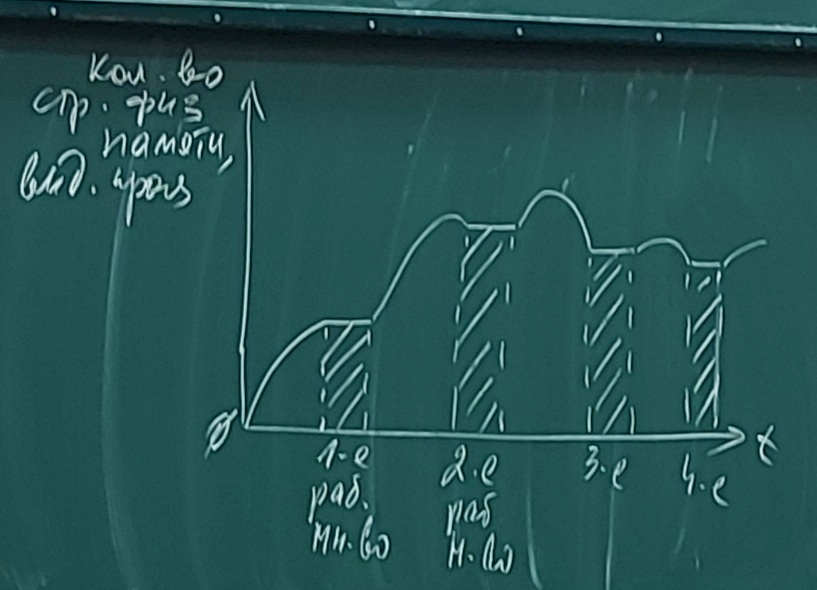 Кол-во
стр. физ
памяти,
выд. проц
0
t
1-е
раб.
мн-во
2-е
раб
м-во
3-е
4-е